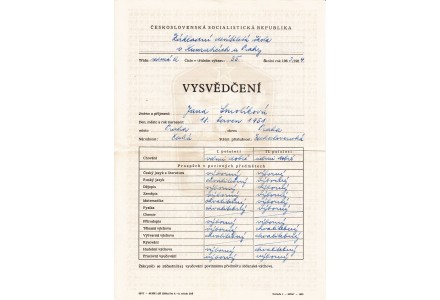 ČESKOSLOVENSKÁ SOCIALISTICKÁ REPUBLIKA
Základní devítiletá škola
v Kunraticích u Prahy
Třída Číslo v třídním výkazu: 25 Školní rok 196
VYSVĚDČENÍ
Jméno a příjmení Jana Smolíková
Den, měsíc a rok narození 18. červen 1951
místo Praha okres Praha
Národnost česká Státní příslušnost československá
I. pololetí II. pololetí
Chování velmi dobré velmi dobré
Prospěch v povinných předmětech
Český jazyk a literatura výborný výborný
Ruský jazyk chvalitebný výborný
Dějepis výborný výborný
Zeměpis výborný výborný
Matematika chvalitebný chvalitebný
Fysika chvalitebný chvalitebný
Chemie
Přírodopis výborný výborný
Tělesná výchova výborný výborný
Výtvarná výchova chvalitebný chvalitebný
Rýsování
Hudební výchova výborný chvalitebný
Pracovní vyučování výborný výborný